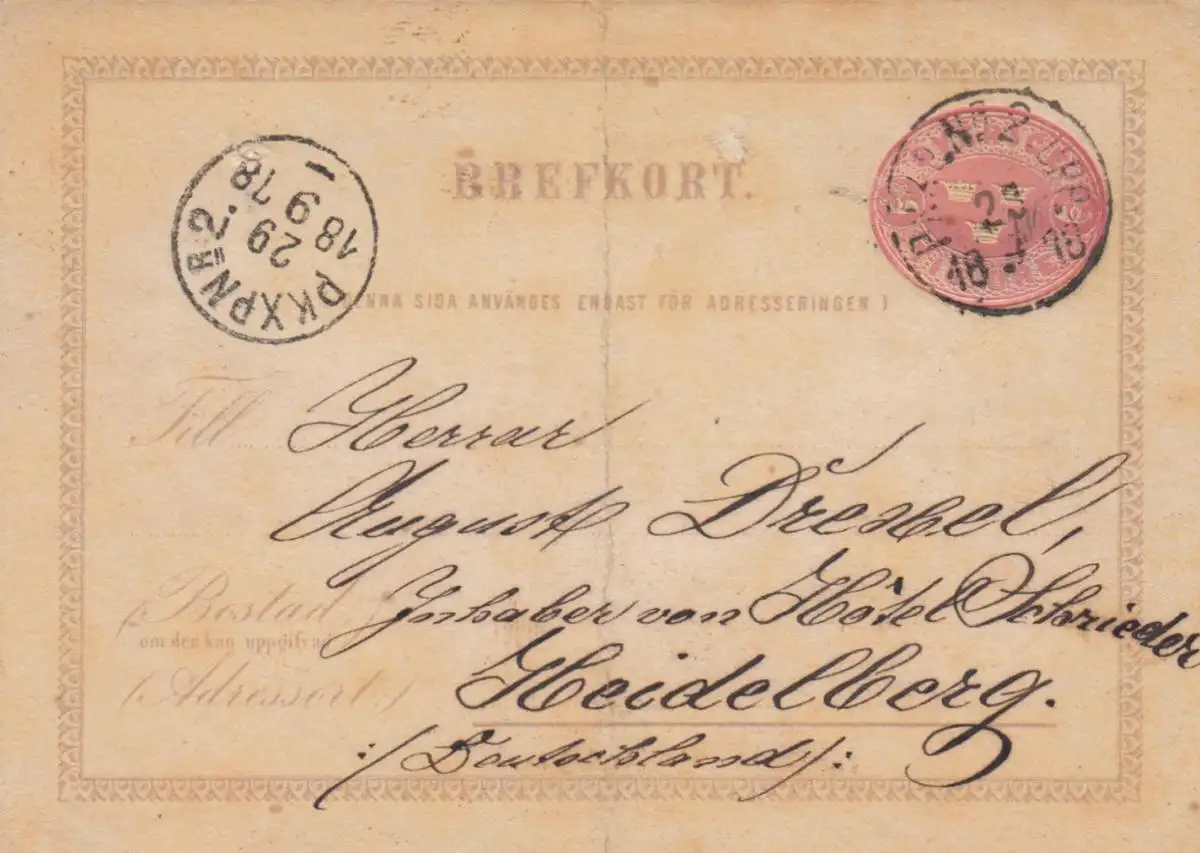 BREFKORT.
No 2
2
18 78
PKXP NR 2.
29 7
18 9 78
NNA SIDA ANVÄNGES ENDAST FÖR ADRESSERINGEN )
Till Herrar
August Drexel,
Bostad Inhaber von Hôtel Schrieder
om den kan uppgifvas
(Adressort) Heidelberg.
:/Deutschland/: